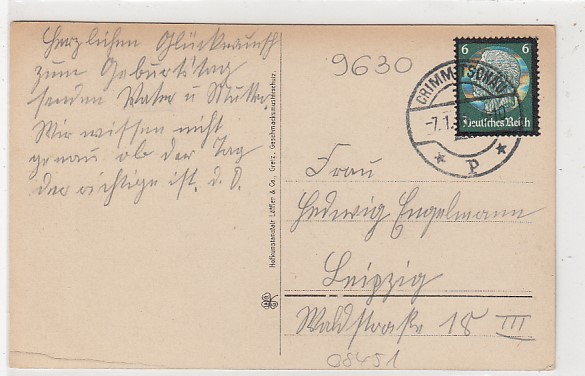 Herzlichen Glückwunsch
zum Geburtstag
senden Vater u Mutter.
Wir wissen nicht
genau ob der Tag
der richtige ist. d. O.
Hofkunstanstalt Löffler & Co., Greiz. Geschmacksmusterschutz.
9630
6 6
Deutsches Reich
CRIMMITSCHAU
-7.1.
* P *
Frau
Hedwig Engelmann
Leipzig
Waldstraße 18 III
08451